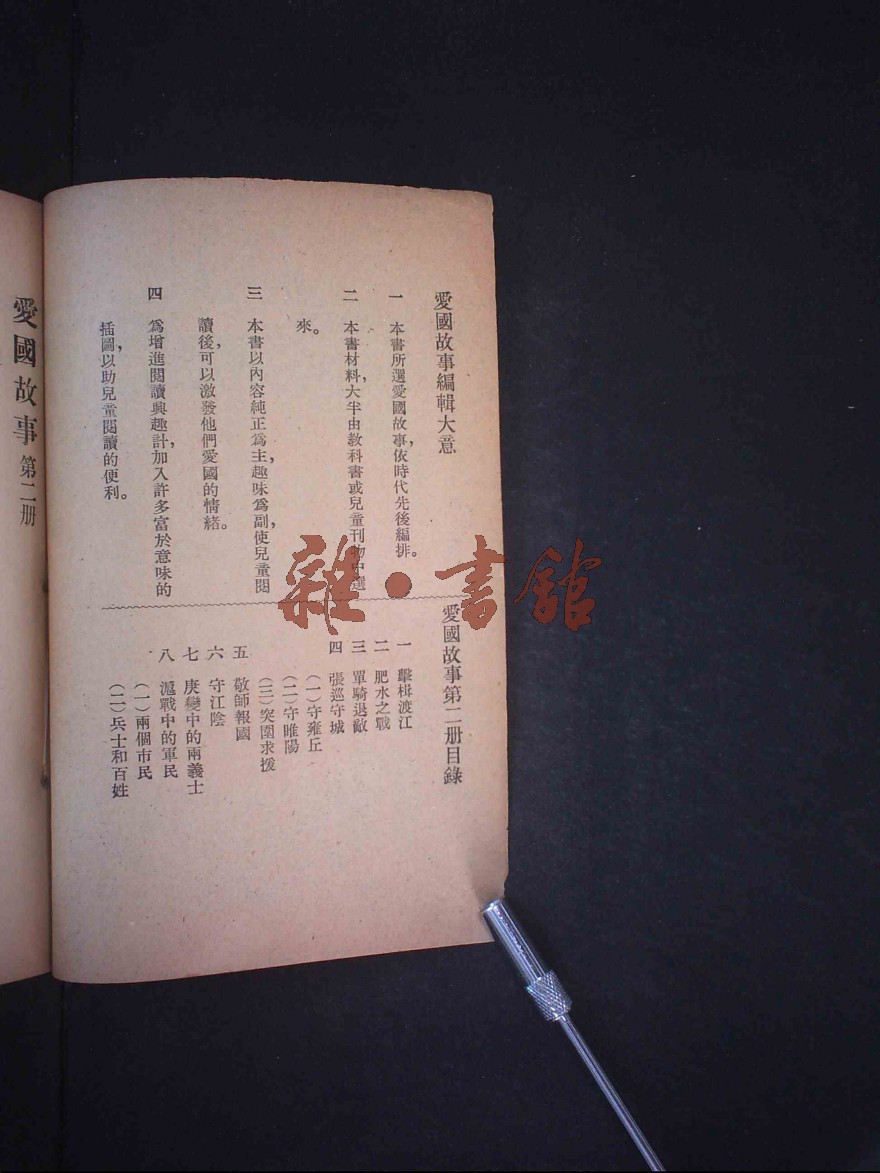 愛國故事編輯大意
一 本書所選愛國故事，依時代先後編排。
二 本書材料，大半由教科書或兒童刊物中選
來。
三 本書以內容純正爲主，趣味爲副，使兒童閱
讀後，可以激發他們愛國的情緒。
四 爲增進閱讀興趣計，加入許多富於意味的
插圖，以助兒童閱讀的便利。
愛國故事第二册目錄
一 擊楫渡江
二 肥水之戰
三 單騎退敵
四 張巡守城
（一）守雍丘
（二）守睢陽
（三）突圍求援
五 敬師報國
六 守江陰
七 庚變中的兩義士
八 滬戰中的軍民
（一）兩個市民
（二）兵士和百姓
愛國故事 第二册
雜·書館